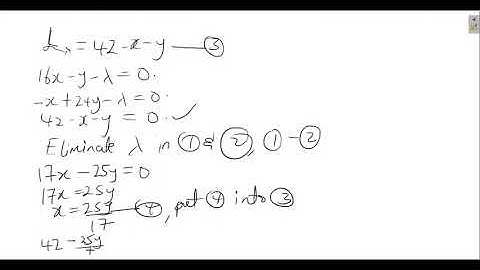 L_λ = 42 - x - y — ③
16x - y - λ = 0.
-x + 24y - λ = 0.
42 - x - y = 0. ✓
Eliminate λ in ① & ②, ① - ②
17x - 25y = 0
17x = 25y
x = 25y/17 — ④, put ④ into ③
42 - 25y/7